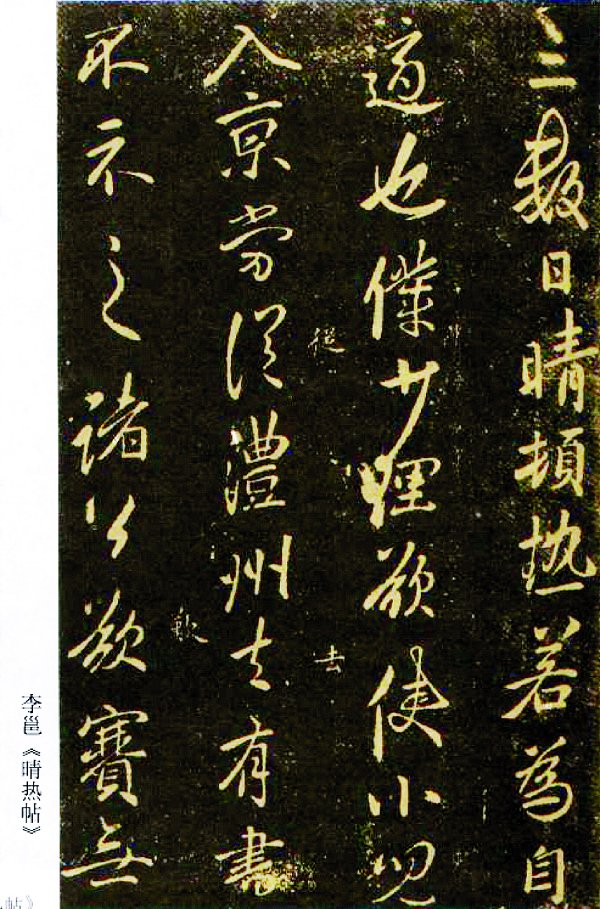 三數日晴頓热若為自
適也僕少理欲使小兒
從
去
入京當從澧州去有書
不示之諸公欲賽無
李邕《晴热帖》
帖》